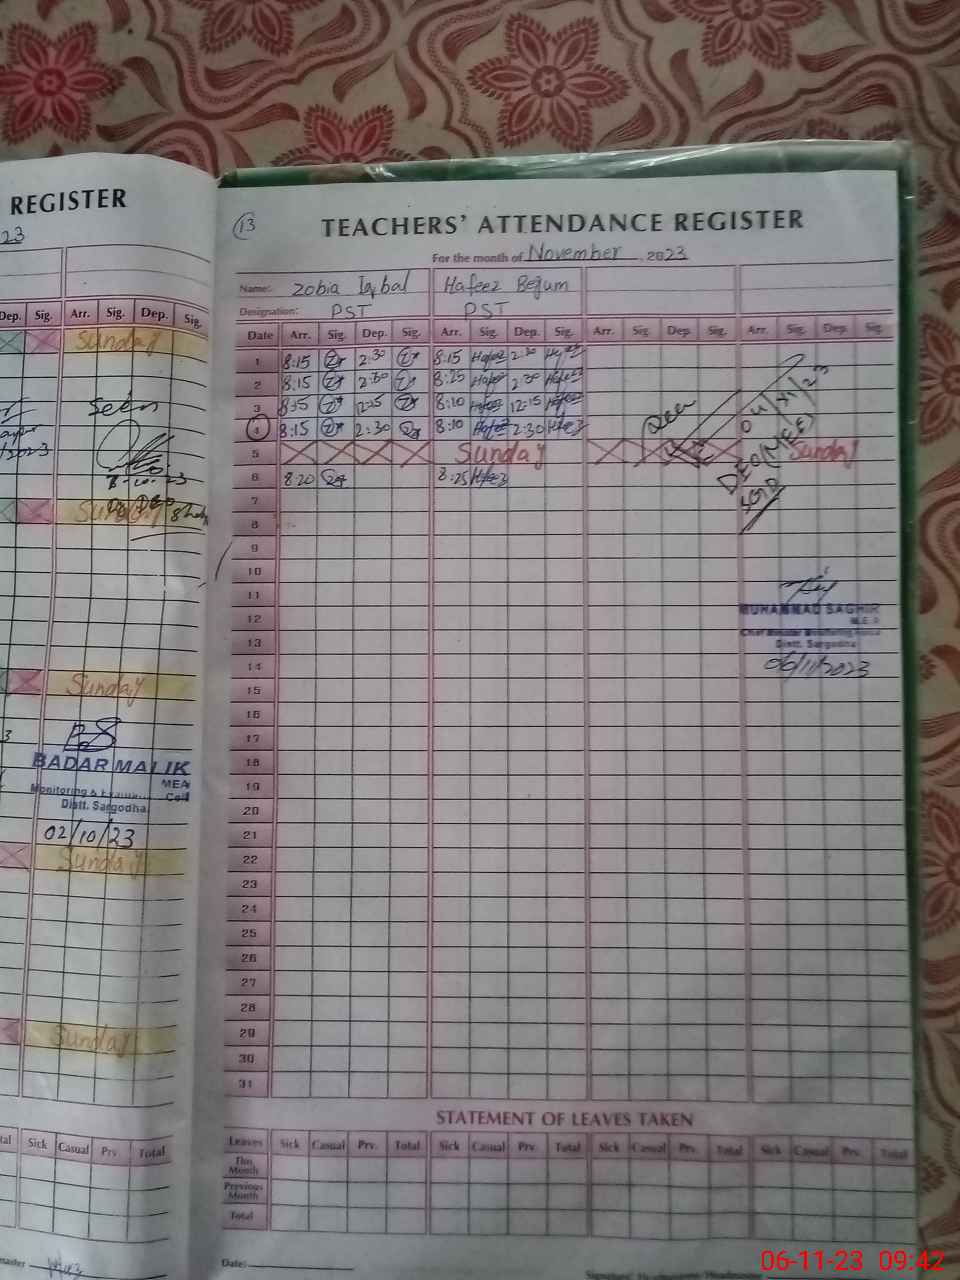 REGISTER
23
Dep. Sig. Arr. Sig. Dep. Sig.
Sunday
Seen
8-10-23
Sunday
Sunday
BADAR MALIK
MEA
Monitoring &
Cell
Distt. Sargodha
02/10/23
Sunday
Sunday
Sick Casual Prv. Total
13
TEACHERS' ATTENDANCE REGISTER
For the month of November, 2023
Name: Zobia Iqbal Hafeez Begum
Designation: PST PST
Date Arr. Sig. Dep. Sig. Arr. Sig. Dep. Sig. Arr. Sig. Dep. Sig. Arr. Sig. Dep. Sig.
1 8:15 2:30 8:15 Hafeez 2:30 Hafeez
2 8:15 2:30 8:25 Hafeez 2:30 Hafeez
3 8:15 12:15 8:10 Hafeez 12:15 Hafeez
4 8:15 2:30 8:10 Hafeez 2:30 Hafeez
5 Sunday Sunday
6 8:20 8:25 Hafeez
7
8
9
10
11
12
13
14
15
16
17
18
19
20
21
22
23
24
25
26
27
28
29
30
31
Seen
04/11/23
DEO(MEE)
SGD
MUHAMMAD SAGHIR
M.E.A
Chief Minister Monitoring Force
Distt. Sargodha
06/11/2023
STATEMENT OF LEAVES TAKEN
Leaves Sick Casual Prv. Total Sick Casual Prv. Total Sick Casual Prv. Total Sick Casual Prv. Total
This Month
Previous Month
Total
Date:
06-11-23 09:42